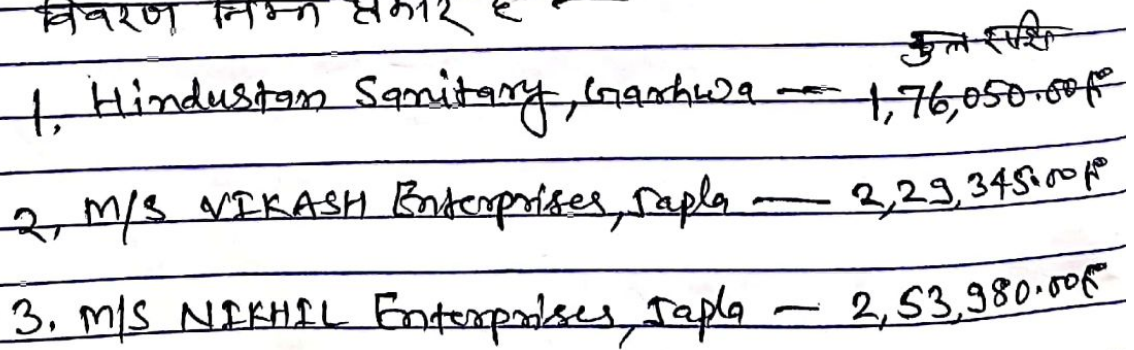 विवरण निम्न प्रकार है
कुल राशि
1. Hindustan Sanitary, Garhwa — 1,76,050.00रु०
2, M/S VIKASH Enterprises, Japla — 2,29,345.00रु०
3. M/S NIKHIL Enterprises, Japla — 2,53,980.00रु०